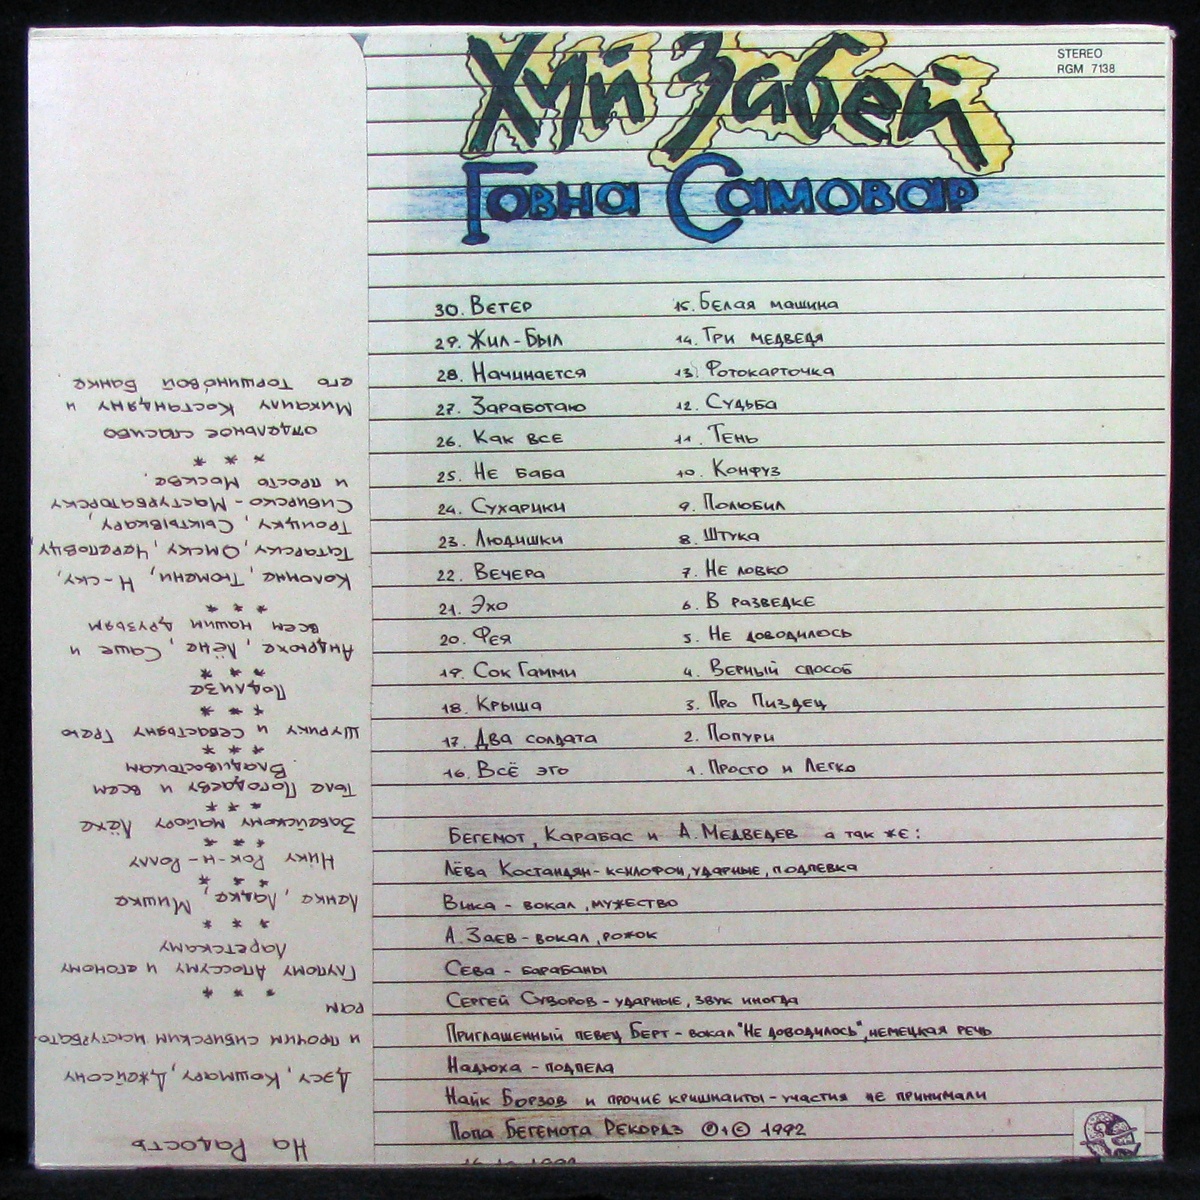 Хуй Забей
STEREO
RGM 7138
Говна Самовар
30. Ветер
29. Жил-Был
28. Начинается
27. Заработаю
26. Как все
25. Не баба
24. Сухарики
23. Людишки
22. Вечера
21. Эхо
20. Фея
19. Сок Гамми
18. Крыша
17. Два солдата
16. Всё это
15. Белая машина
14. Три медведя
13. Фотокарточка
12. Судьба
11. Тень
10. Конфуз
9. Полюбил
8. Штука
7. Не ловко
6. В разведке
5. Не доводилось
4. Верный способ
3. Про Пиздец
2. Попури
1. Просто и Легко
Бегемот, Карабас и А. Медведев а так же:
Лёва Костандян - ксилофон, ударные, подпевка
Вика - вокал, мужество
А. Заев - вокал, рожок
Сева - барабаны
Сергей Суворов - ударные, звук иногда
Приглашенный певец Берт - вокал "Не доводилось", немецкая речь
Надюха - подпела
Найк Борзов и прочие кришнаиты - участия не принимали
Попа Бегемота Рекордз ℗+© 1992
На Радость
Дэсу, Кошмару, Джейсону
и прочим сибирским мастурбато-
рам
* * *
Глупому Апоссуму и егоному
Ларетскому
* * *
Ленке, Ладке, Мишке
* * *
Нику Рок-н-Роллу
* * *
Забейскому майору Лёхе
* * *
Толе Погодаеву и всем
Владивостокам
* * *
Шурику и Севастьяну Грею
* * *
Подлизе
* * *
Андрюхе, Лёне, Саше и
всем нашим друзьям
* * *
Коломне, Тюмени, Н-ску,
Татарску, Омску, Череповцу
Троицку, Сыктывкару,
Сибирско-Мастурбаторску
и просто Москве.
* * *
отдельное спасибо
Михаилу Костандяну и
его Торшиновой Банке